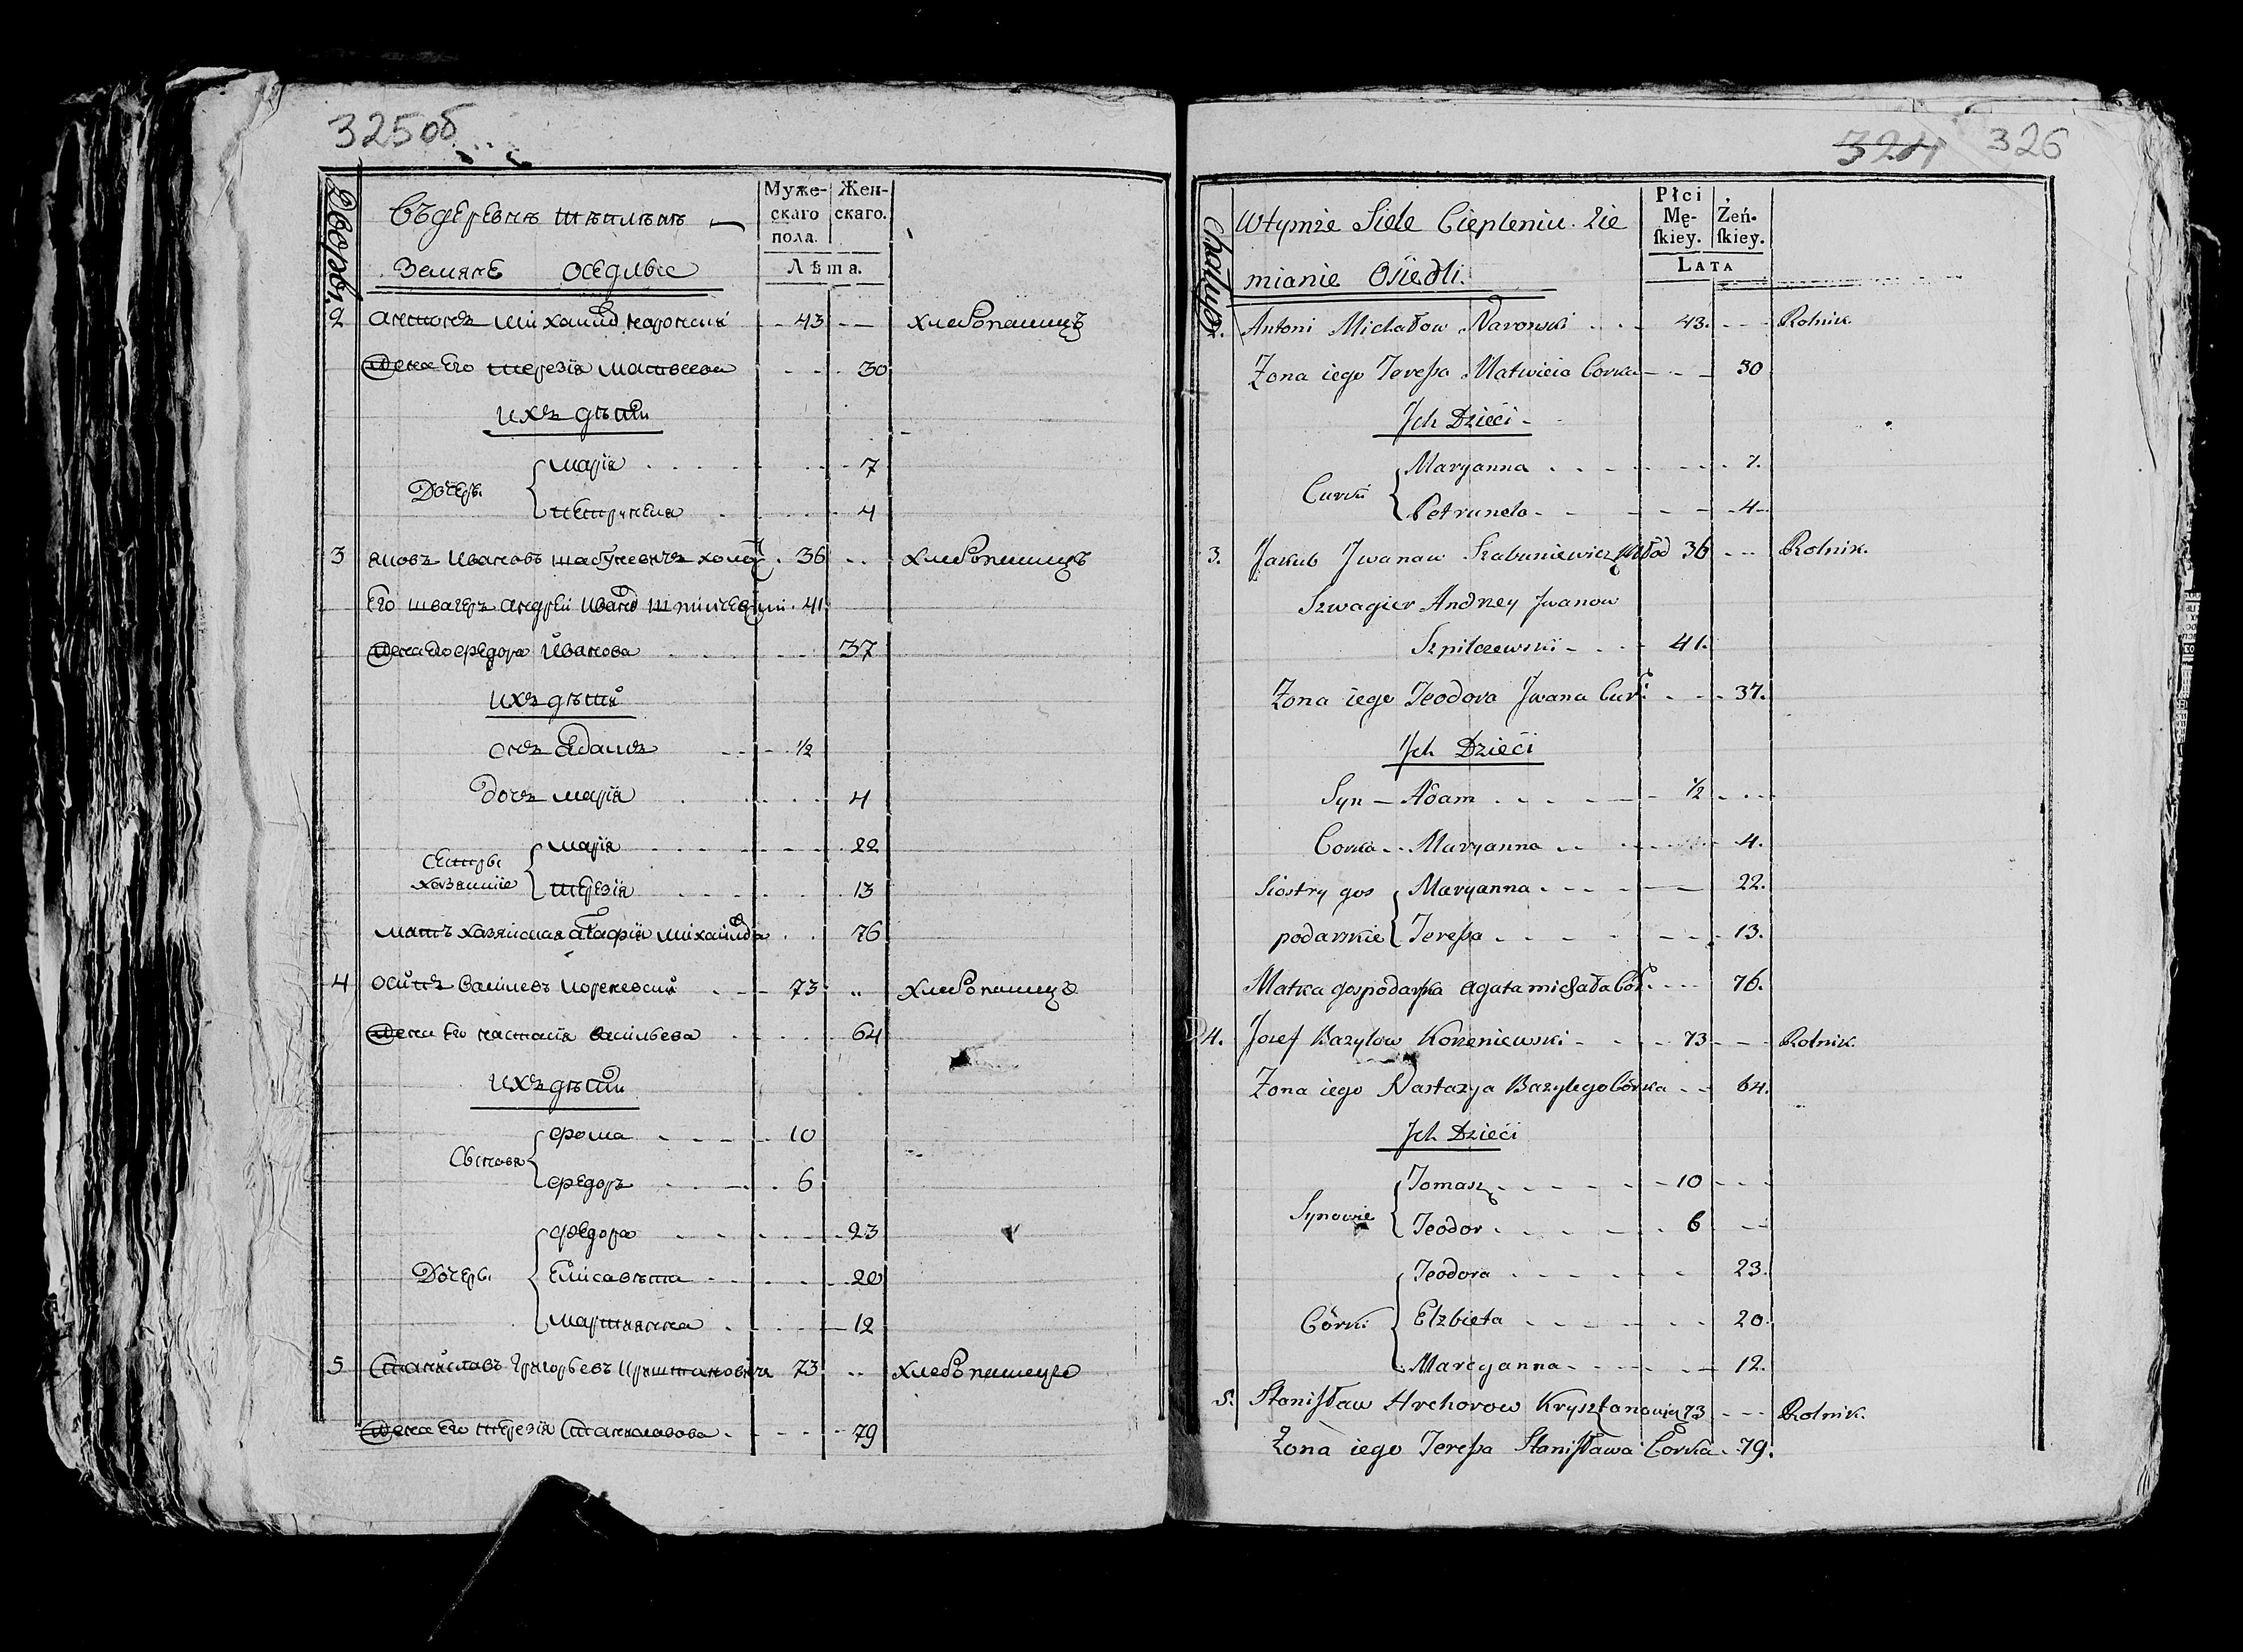 325об
Дворы.
Въ деревнѣ тѣплѣнѣ
Муже-
скаго
пола.
Жен-
скаго.
Земяне оседлые
Лѣта.
2 антонъ михаило наронскій 43 хлебопашецъ
жена Его терезія матвеева 30
ихъ дѣти
Дочеры
марія 7
петрунеля 4
3 яковъ ивановъ шабуневичъ холо 36 хлебопашецъ
Его швагеръ андрей 41
жена Его федора иванова 37
ихъ дѣти
сынъ адамъ 1/2
дочь марія 4
сестры хозяйскіе
марія 22
терезія 13
мать хозяйская агафія 76
4 осипъ васильевъ кореневскій 73 хлебопашецъ
жена Его настасія васильева 64
ихъ дѣти
Сыновя
фома 10
федоръ 6
Дочеры
федора 23
Елисавѣта 20
12
5 Станиславъ григорьевъ криштановичъ 73 хлебопашецъ
жена Его терезія Станиславова 79
324 326
Chałupy
Wtymże Siele Ciepleniu. Zie
mianie Osiedli.
Płci
Mę-
skiey.
Żeń-
skiey.
LATA
Antoni Michałow Narowski 43. Rolnik.
Żona iego Teressa Matwieia Corka 30
Jch Dzieci
Curki
Maryanna 7.
Petrunela 4
3. Jakub Jwanaw Szabuniewicz Młod 36 Rolnik.
Szwagier Andrzey Jwanow
Szpilczewski 41.
Żona iego Teodora Jwana Cur: 37.
Jch Dzieci
Syn Adam 1/2
Corka Maryanna 4.
Siostry gos
podarskie
Maryanna 22.
Teressa 13.
Matka gospodarska Agata michała Cór. 76.
4. Jozef Bazylow Korzeniewski 73 Rolnik.
Żona iego Nastazya Bazylego Córka 64.
Jch Dzieci
Synowie
Tomasz 10
Teodor 6
Córki
Teodora 23.
Elzbieta 20.
Marcyanna 12.
5. Stanisław Hrehorow Krysztanowicz 73 Rolnik.
Żona iego Teressa Stanisława Corka 79.